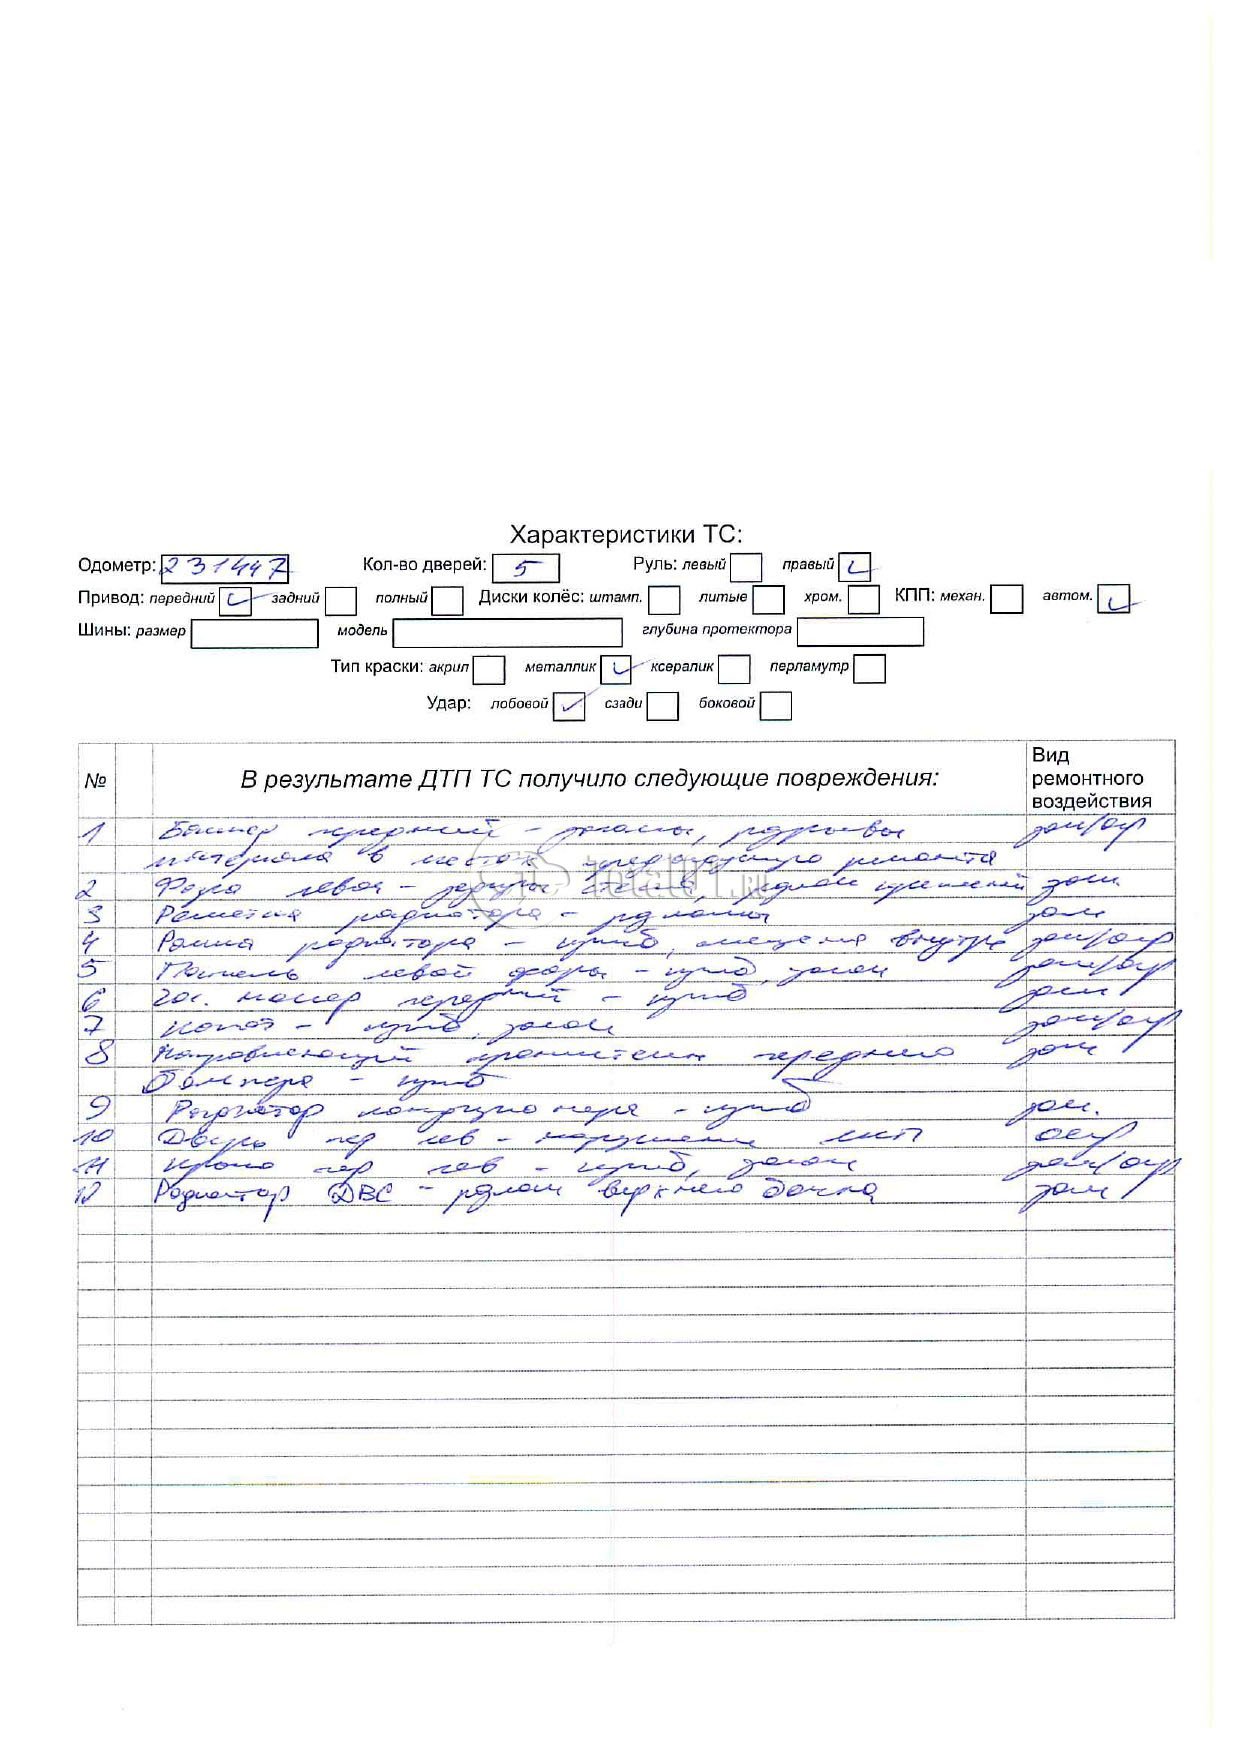 Характеристики ТС:
Одометр: 231447 Кол-во дверей: 5 Руль: левый правый
Привод: передний задний полный Диски колёс: штамп. литые хром. КПП: механ. автом.
Шины: размер модель глубина протектора
Тип краски: акрил металлик ксералик перламутр
Удар: лобовой сзади боковой
№ В результате ДТП ТС получило следующие повреждения: Вид ремонтного воздействия
1 Бампер передний - заломы, разрывы зам/окр
материала в местах предыдущего ремонта
2 Фара левая - крепления зам.
3 Решетка радиатора - разломы зам
4 Рамка радиатора - изгиб, смещена внутрь зам/окр
5 Панель левой фары - изгиб, залом зам/окр
6 гос. номер передний - изгиб зам
7 капот - изгиб, залом зам/окр
8 Направляющий кронштейн переднего зам
бампера - изгиб
9 Радиатор кондиционера - изгиб зам.
10 Дверь пер лев - нарушение ЛКП окр
11 Крыло пер лев - изгиб, залом зам/окр
12 Радиатор ДВС - разлом верхнего бачка зам
total01.ru